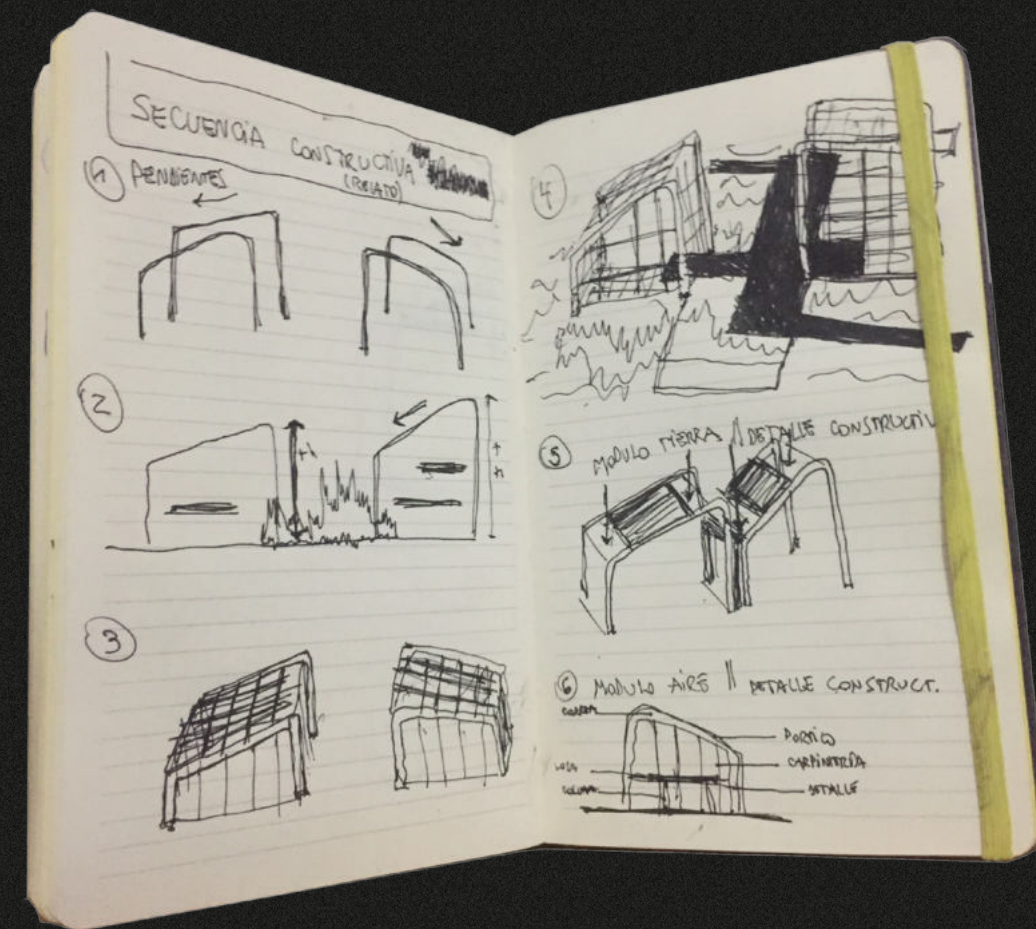 SECUENCIA CONSTRUCTIVA
(RELATO)
1 PENDIENTES
2
+h
+h
3
4
5 MODULO TIERRA || DETALLE CONSTRUCTIV
6 MODULO AIRE || DETALLE CONSTRUCT.
CORREA
PORTICO
CARPINTERÍA
LOSA
COLUMNA
DETALLE